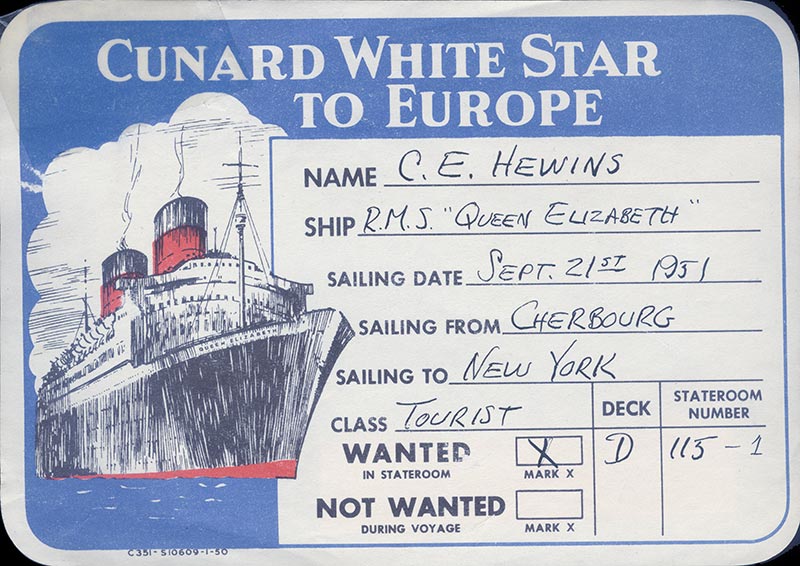 CUNARD WHITE STAR
TO EUROPE
NAME C. E. HEWINS
SHIP R.M.S. "QUEEN ELIZABETH"
SAILING DATE SEPT. 21ST 1951
SAILING FROM CHERBOURG
SAILING TO NEW YORK
CLASS TOURIST
DECK
STATEROOM
NUMBER
D
115-1
WANTED
IN STATEROOM
X
MARK X
NOT WANTED
DURING VOYAGE
MARK X
QUEEN ELIZABETH
C351-S10609-1-50